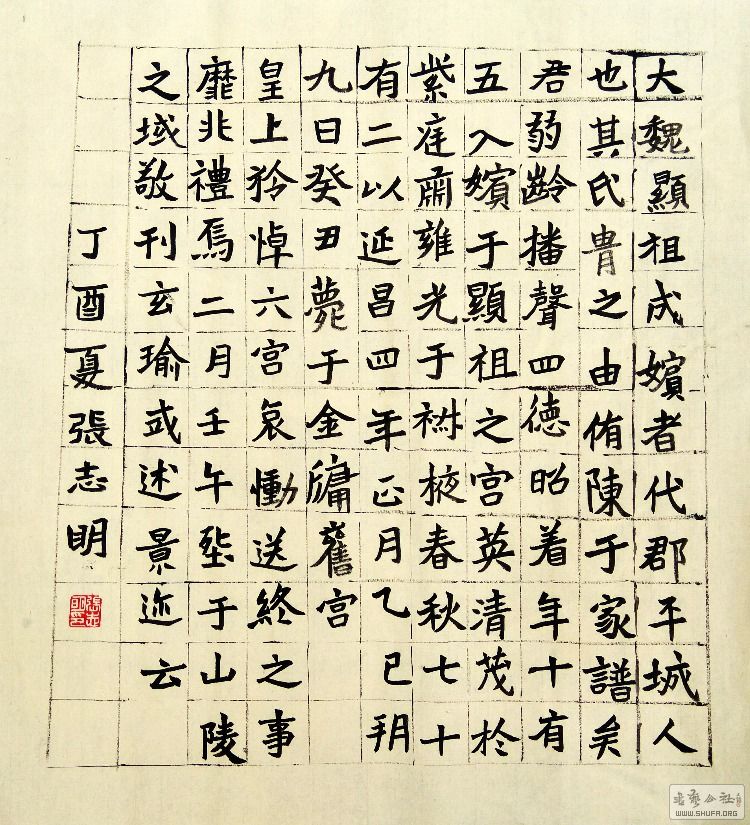 大魏顯祖成嬪者代郡平城人
也其氏胄之由侑陳于家譜矣
君弱齡播聲四德昭着年十有
五入嬪于顯祖之宫英清茂於
紫庭肅雍光于椒掖春秋七十
有二以延昌四年正月乙巳朔
九日癸丑薨于金墉舊宫
皇上矜悼六宫哀慟送終之事
靡非禮焉二月壬午塟于山陵
之域敬刊玄瑜式述景迹云
丁酉夏張志明
張志明印
书艺公社
WWW.SHUFA.ORG